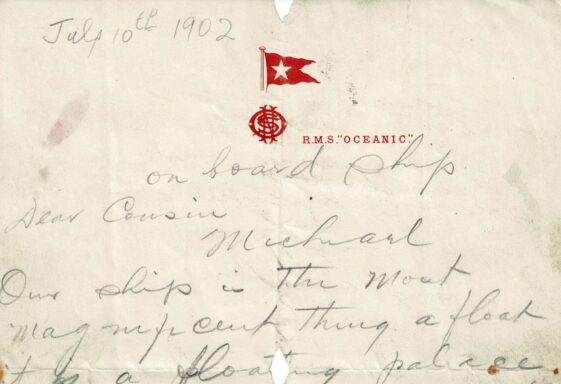 July 10th 1902
R.M.S. "OCEANIC"
on board ship
Dear Cousin
Michael
Our ship is The Most
magnificent thing a float
a floating palace